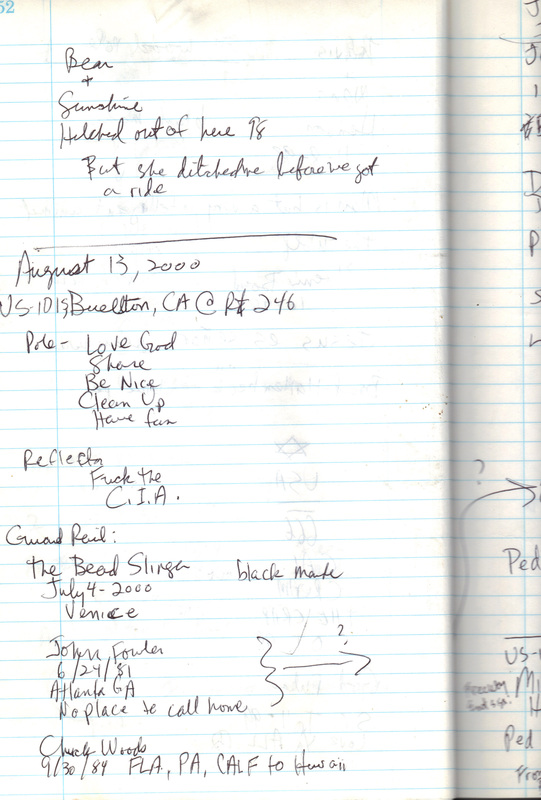 52
Bear
+
Sunshine
Hitched out of here 98
But she ditched me before we got
a ride
August 13, 2000
US-101 Buellton, CA @ Rt 246
Pole - Love God
Share
Be Nice
Clean Up
Have fun
Reflector
Fuck the
C.I.A.
Guard Rail:
the Bead Slinger black mark
July 4 - 2000
Venice
John Fowler
6/24/81 ?
Atlanta GA
No place to call home
Chuck Woods
9/30/84 FLA, PA, CALF to Hawaii
?
Ped
US-1
Ped